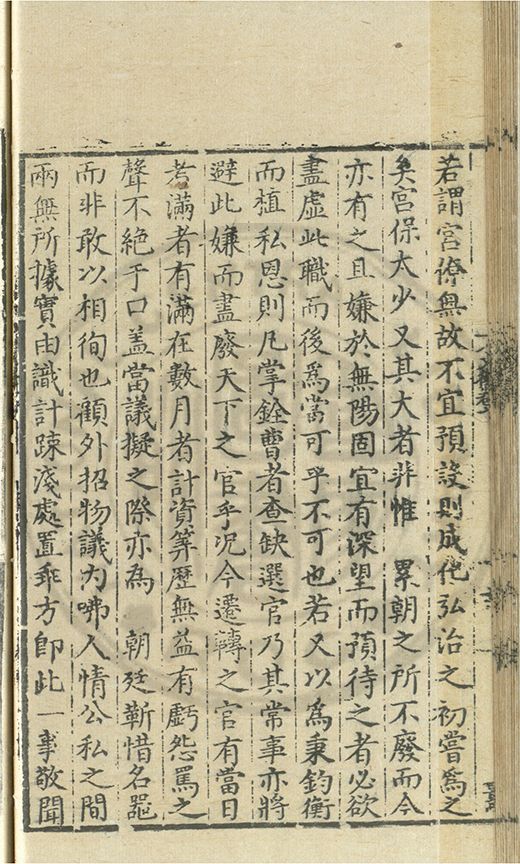 若謂宮僚無故不宜預設則成化弘治之初嘗爲之
矣宮保太少又其大者非惟 累朝之所不廢而今
亦有之且嫌於無陽固宜有深望而預待之者必欲
盡虛此職而後爲當可乎不可也若又以爲秉鈞衡
而植私恩則凡掌銓曹者查缺選官乃其常事亦將
避此嫌而盡廢天下之官乎况今遷轉之官有當日
考滿者有滿在數月者計資筭歷無益有虧怨罵之
聲不絕于口盖當議擬之際亦為 朝廷靳惜名器
而非敢以相徇也顧外招物議内咈人情公私之間
兩無所據實由識計踈淺處置乖方即此一事敬聞